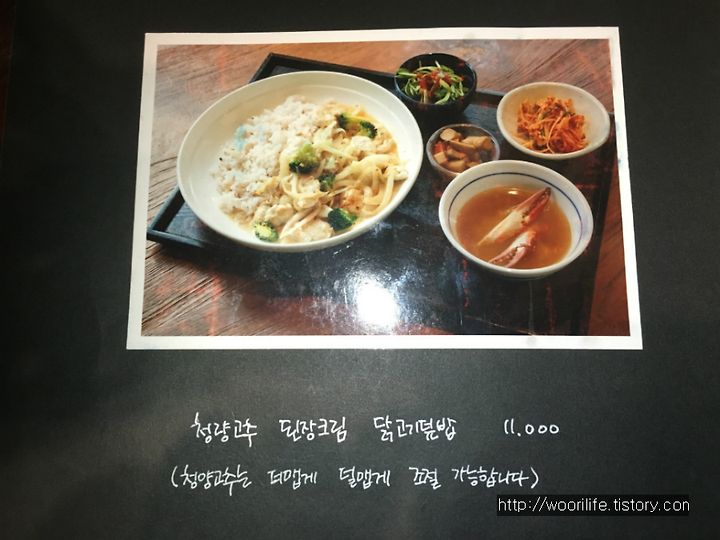 청량고추 된장크림 닭고기덮밥 11.000
(청양고추는 더맵게 덜맵게 조절 가능합니다)
http://woorilife.tistory.com